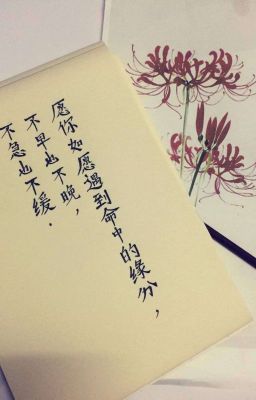 愿你如愿遇到命中的缘分，
不早也不晚，
不急也不缓．